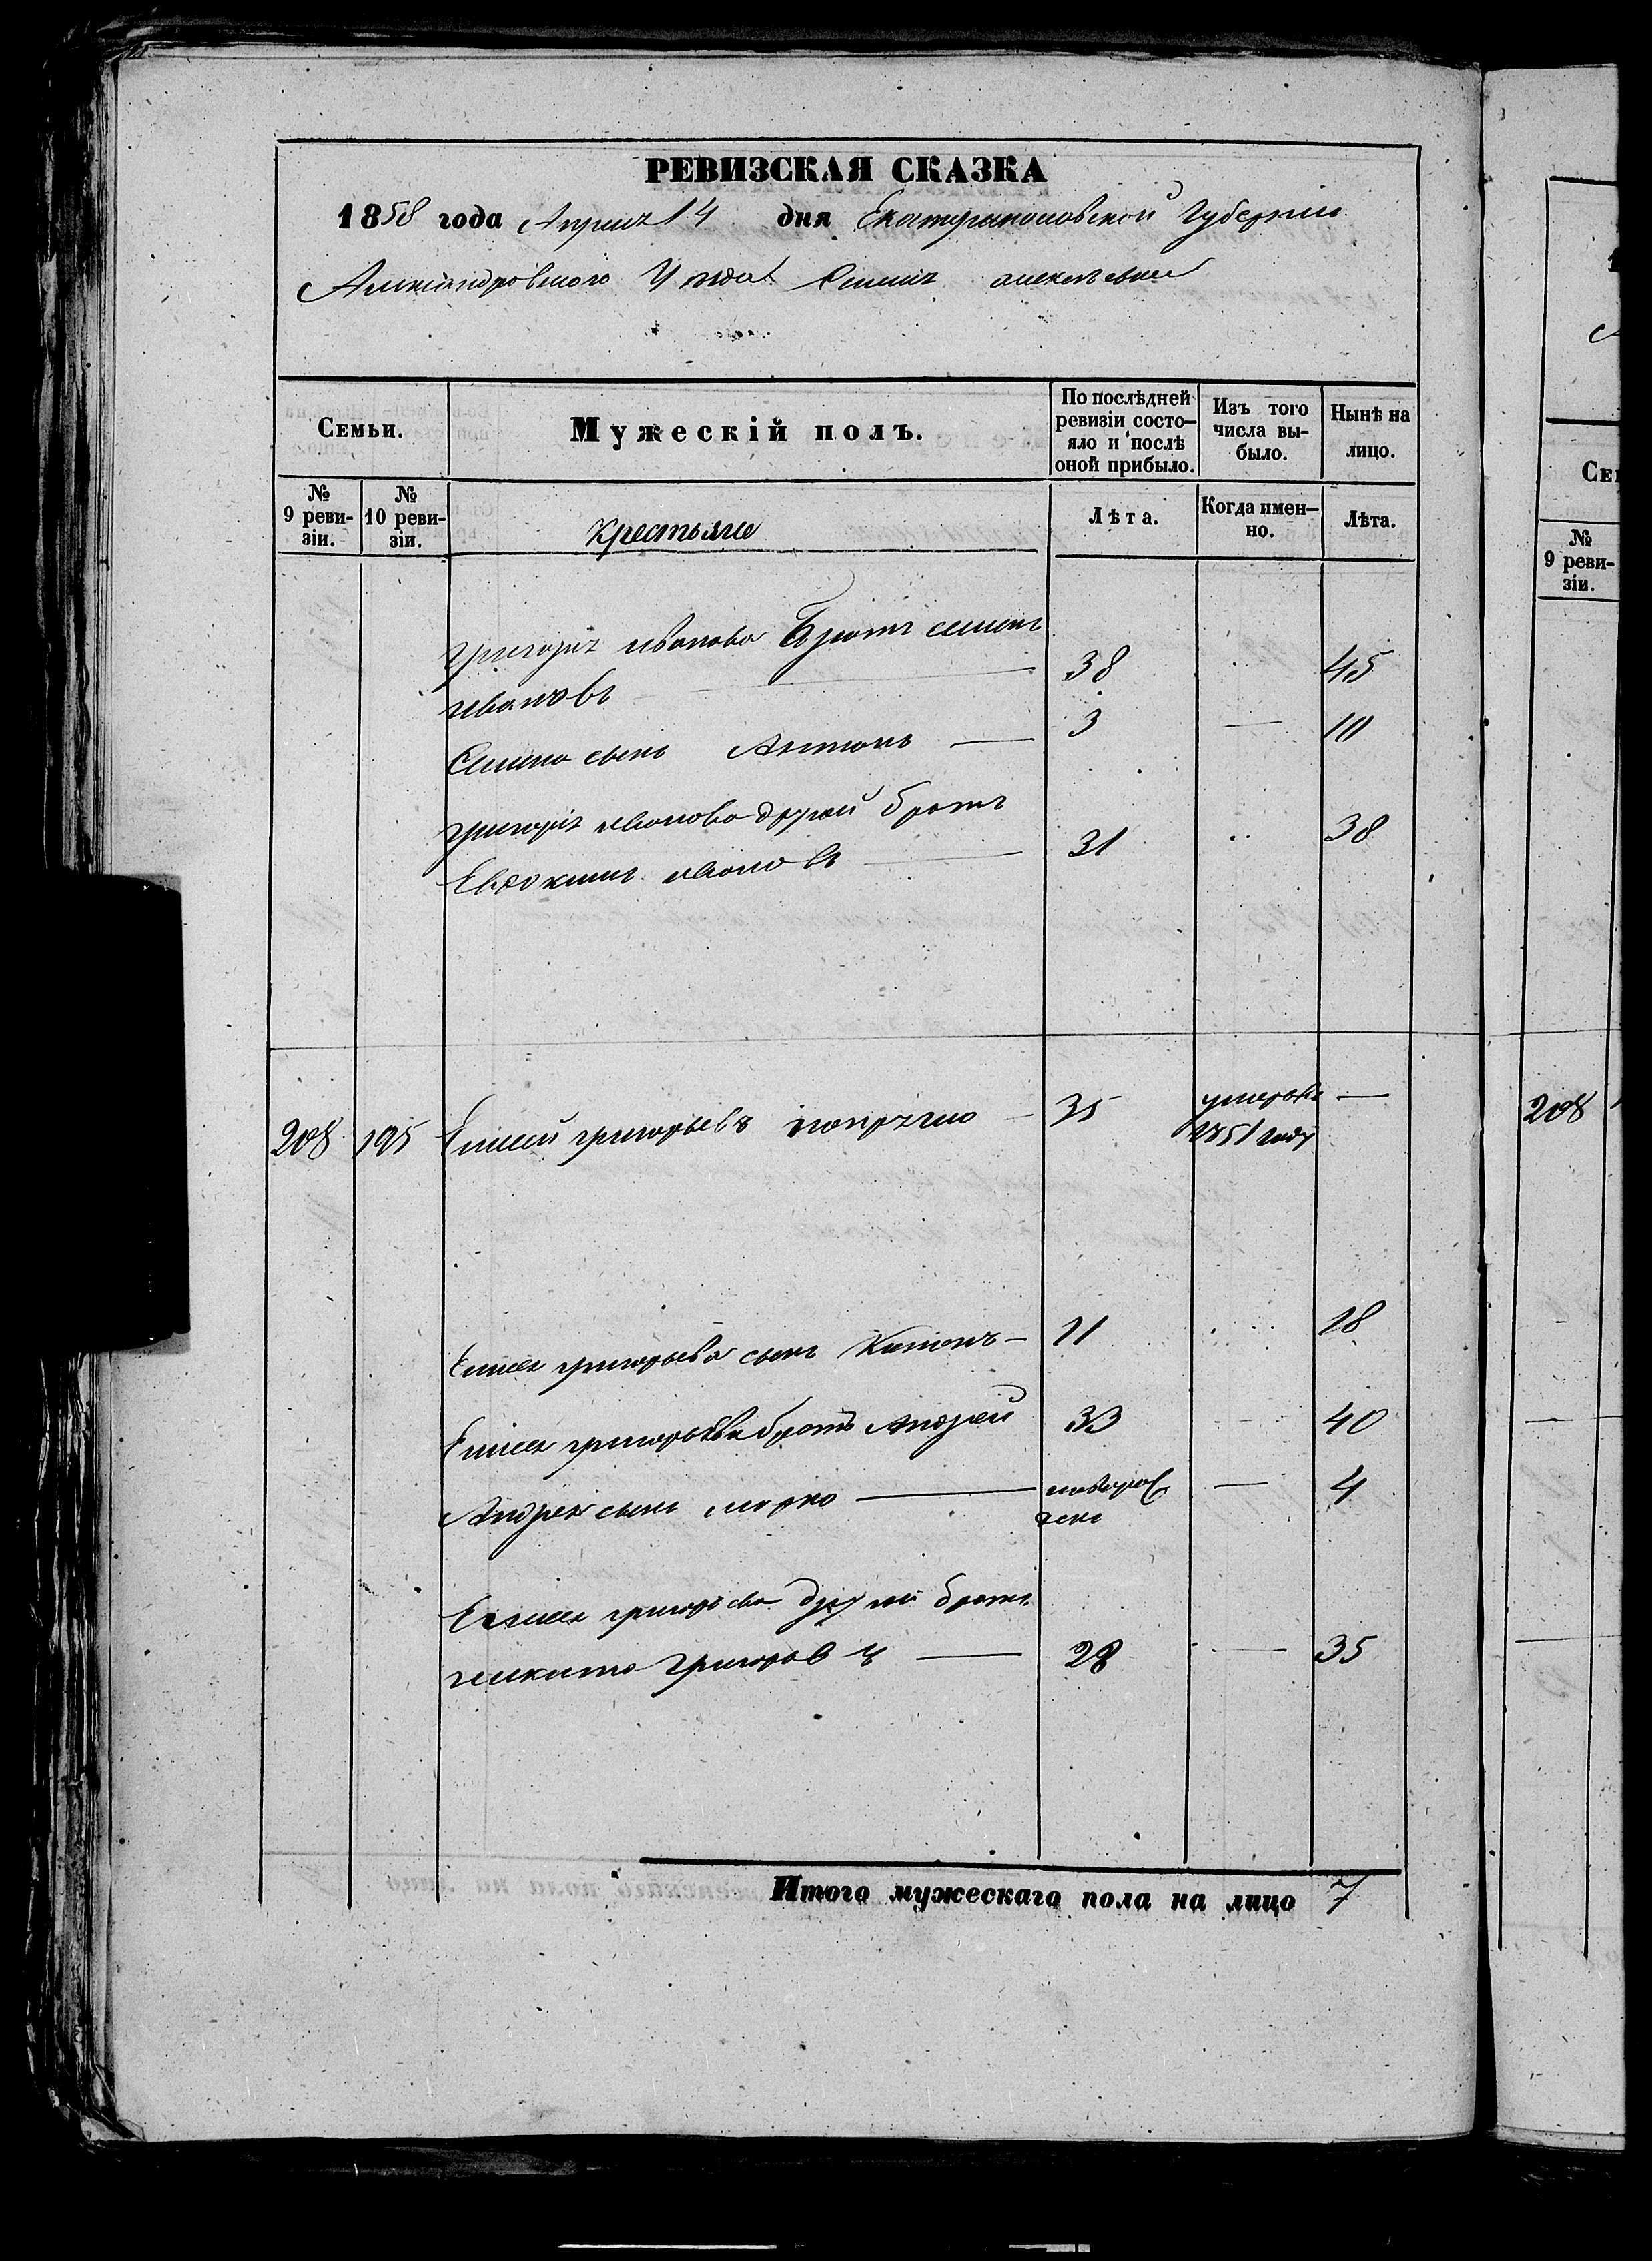 РЕВИЗСКАЯ СКАЗКА
1858 года Априля 14 дня Екатеринославской Губернии
Александровского Уезда Алексеевка
Семьи. Мужескій полъ. По послѣдней ревизіи состо-яло и послѣ оной прибыло. Изъ того числа вы-было. Нынѣ на лицо.
№ 9 реви-зіи. № 10 реви-зіи. Крестьяне Лѣта. Когда имен-но. Лѣта.
Григорія иванова Братъ семенъ
ивановъ 38 45
Семена сынъ Антонъ 3 10
григорія иванова другой братъ
Евдокимъ ивановъ 31 38
208 195 Елисей григорьевъ 35 умеръ въ 1851 году —
Елисея григорьева сынъ 11 18
Елисея григорьева братъ Андрей 33 40
Андрея сынъ марко новорож денъ — 4
Елисея григорьева другой братъ
никита Григоров ъ 28 — 35
Итого мужескаго пола на лицо 7
СЕ
№ 9 реви-зіи.
208